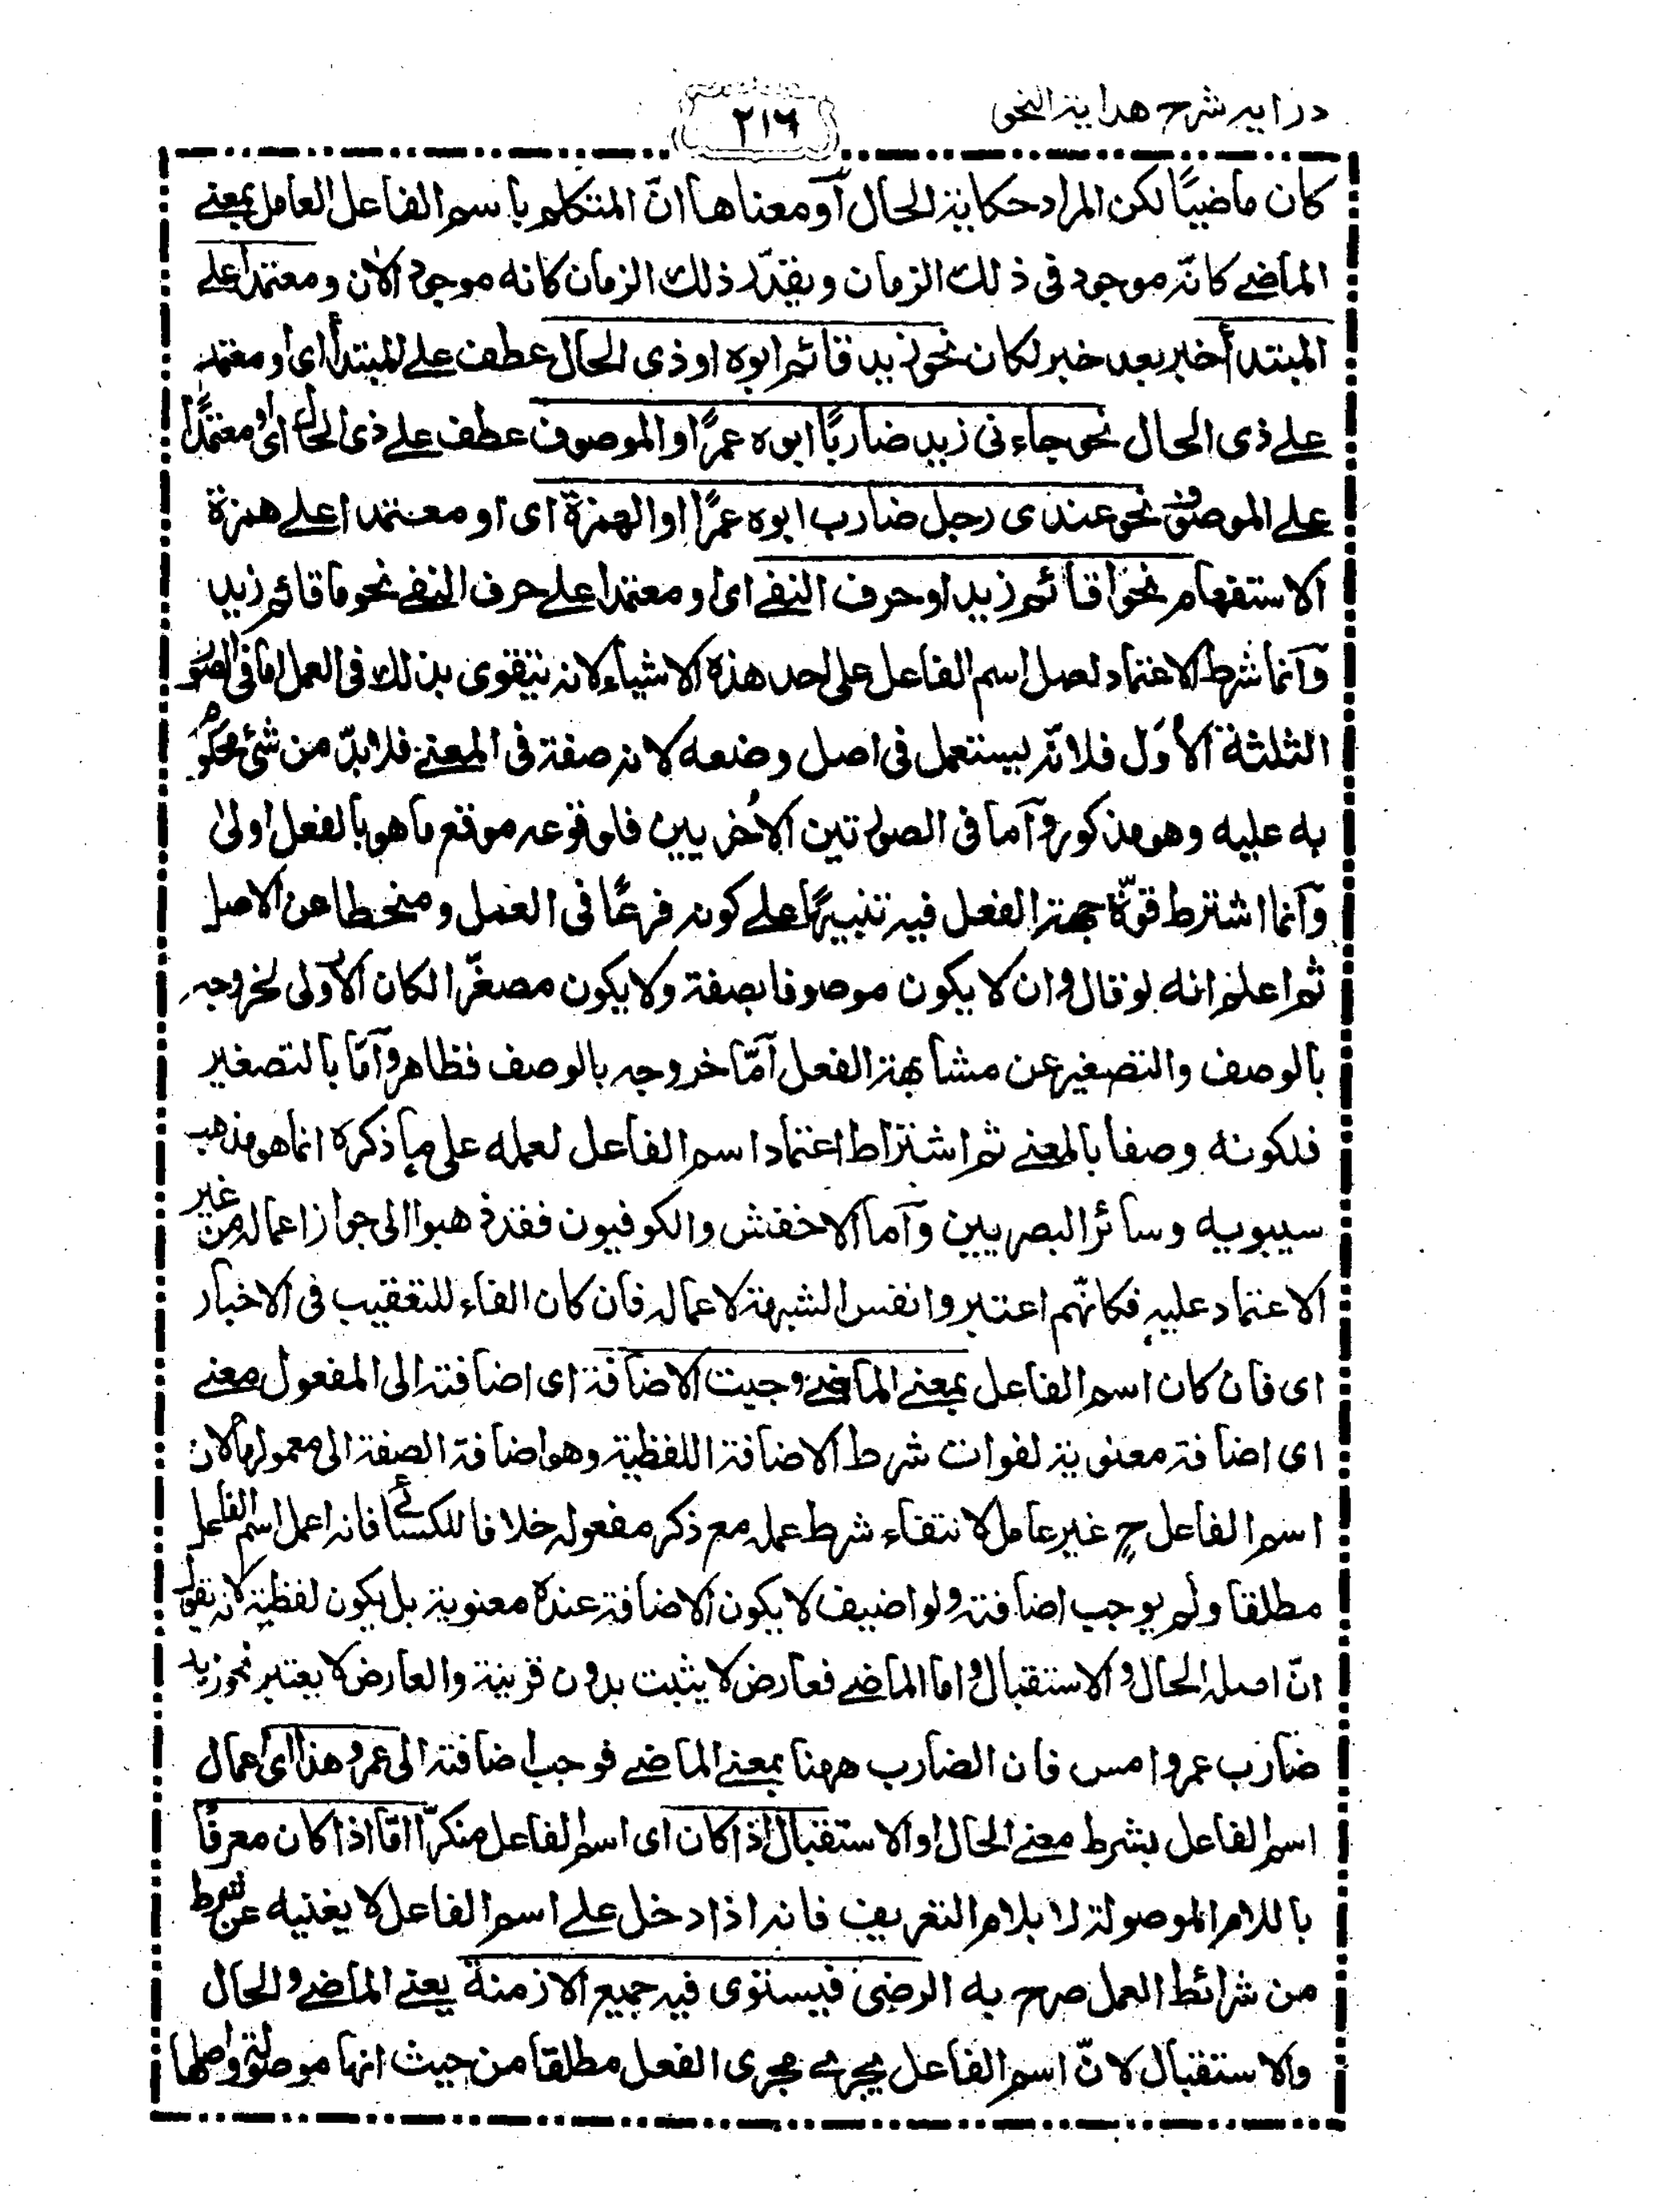 درايه شرح هداية النحو
٢١٦
كان ماضيًا لكن المراد حكاية الحال أو معناها انّ المتكلم باسم الفاعل العامل بمعنے
الماضے كانّه موجود فى ذلك الزمان و يقدّر ذلك الزمان كانه موجود الاٰن و معتمدا علے
المبتدأ خبر بعد خبر لكان نحو زيد قائم ابوه او ذى الحال عطف علے المبتدأ اى او معتمد
علے ذى الحال نحو جاءنى زيد ضاربًا ابوه عمرًا او الموصوف عطف علے ذى الحال اى او معتمدًا
علے الموصوف نحو عندى رجل ضارب ابوه عمرًا او الهمزة اى او معتمدا علے همزة
الاستفهام نحو اقائم زيد او حرف النفے اى او معتمدا علے حرف النفے نحو ما قائم زيد
وآنما شرط الاعتماد لعمل اسم الفاعل على احد هذه الاشياء لانه يتقوى بذلك فى العمل اما فى الصور
الثلثة الأوَل فلانّه يستعمل فى اصل وضعه لانه صفة فى المعنے فلا بدّ من شئ محكوم
به عليه وهو مذكور وآما فى الصورتين الاُخريين فلوقوعه موقع ما هو بالفعل اولىٰ
وآنما اشترط قوّة جهة الفعل فيه تنبيهًا علے كونه فرعًا فى العمل و منحطا عن الاصل
ثم اعلم انه لو قال وان لا يكون موصوفا بصفة ولا يكون مصغّرا لكان الأولى لخروجه
بالوصف والتصغير عن مشابهة الفعل آمّا خروجه بالوصف فظاهر وآمّا بالتصغير
فلكونه وصفا بالمعنے ثم اشتراط اعتماد اسم الفاعل لعمله على ما ذكره انما هو مذهب
سيبويه وسائر البصريين وآما الاخفش والكوفيون فقد ذهبوا الى جواز اعماله من غير
الاعتماد عليه فكانّهم اعتبروا نفس الشبهة لاعماله فان كان الفاء للتعقيب فى الاخبار
اى فان كان اسم الفاعل بمعنے الماضے وجبت الاضافة اى اضافته الى المفعول معنے
اى اضافة معنوية لفوات شرط الاضافة اللفظية وهو اضافة الصفة الى معمولها لان
اسم الفاعل ح غير عامل لانتفاء شرط عمله مع ذكر مفعوله خلافا للكسائے فانه اعمل اسم الفاعل
مطلقا ولم يوجب اضافته ولو اضيف لا يكون الاضافة عنده معنوية بل يكون لفظية لانه يقول
انّ اصله الحال و الاستقبال و اما الماضے فعارض لا يثبت بدون قرينة والعارض لا يعتبر نحو زيد
ضارب عمرو امس فان الضارب ههنا بمعنے الماضے فوجب اضافته الى عمرو هذا اى اعمال
اسم الفاعل بشرط معنے الحال او الاستقبال اذا كان اى اسم الفاعل منكرًا امّا اذا كان معرفًا
باللام الموصولة لا بلام التعريف فانه اذا دخل علے اسم الفاعل لا يغنيه عن شرط
من شرائط العمل صرح به الرضى فيستوى فيه جميع الازمنة يعنے الماضے والحال
والاستقبال لانّ اسم الفاعل يجرے مجرى الفعل مطلقا من حيث انها موصولة واصلها